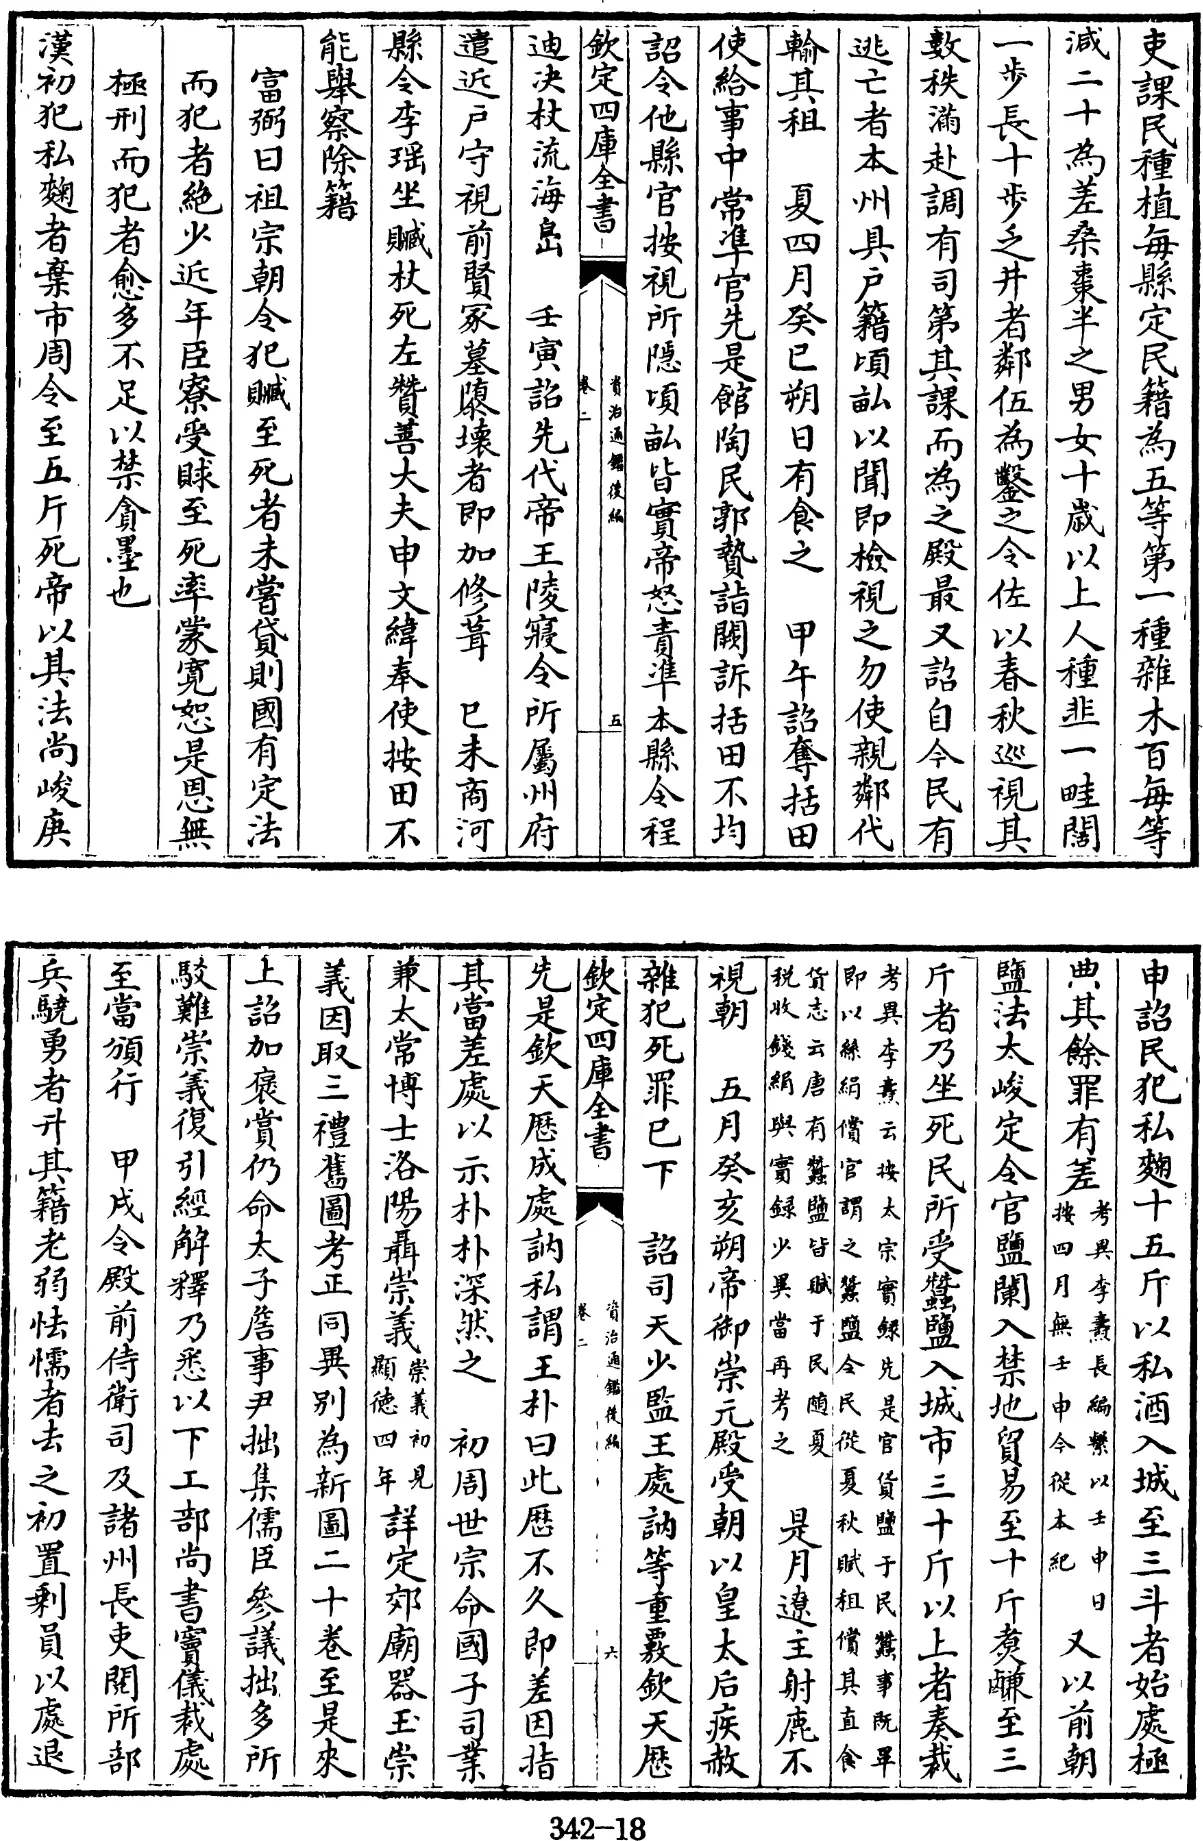 吏課民種植每縣定民籍為五等第一種雜木百每等
減二十為差桑棗半之男女十歲以上人種韭一畦闊
一步長十步乏井者鄰伍為鑿之令佐以春秋巡視其
數秩滿赴調有司第其課而為之殿最又詔自今民有
逃亡者本州具戶籍頃畝以聞即檢視之勿使親鄰代
輸其租　夏四月癸巳朔日有食之　甲午詔奪括田
使給事中常準官先是館陶民郭贄詣闕訴括田不均
詔令他縣官按視所隱頃畝皆實帝怒責準本縣令程
欽定四庫全書　資治通鑑後編　卷二　五
迪决杖流海島　壬寅詔先代帝王陵寢令所屬州府
遣近戶守視前賢冢墓隳壞者即加修葺　巳未商河
縣令李瑶坐贓杖死左贊善大夫申文緯奉使按田不
能舉察除籍
富弼曰祖宗朝令犯贓至死者未嘗貸則國有定法
而犯者絶少近年臣寮受賕至死率蒙寛恕是恩無
極刑而犯者愈多不足以禁貪墨也
漢初犯私麴者棄市周令至五斤死帝以其法尚峻庚
申詔民犯私麴十五斤以私酒入城至三斗者始處極
典其餘罪有差考異李燾長編繫以壬申日按四月無壬申今從本紀　又以前朝
鹽法太峻定令官鹽闌入禁地貿易至十斤煑鹻至三
斤者乃坐死民所受蠶鹽入城市三十斤以上者奏裁
考異李燾云按太宗實録先是官貨鹽于民蠶事既畢
即以絲絹償官謂之蠶鹽令民從夏秋賦租償其直食
貨志云唐有蠶鹽皆賦于民随夏
税收錢絹與實録少異當再考之　是月遼主射鹿不
視朝　五月癸亥朔帝御崇元殿受朝以皇太后疾赦
雜犯死罪巳下　詔司天少監王處訥等重覈欽天歴
欽定四庫全書　資治通鑑後編　卷二　六
先是欽天歴成處訥私謂王朴曰此歴不久即差因指
其當差處以示朴朴深然之　初周世宗命國子司業
兼太常博士洛陽聶崇義崇義初見顯德四年詳定郊廟器玉崇
義因取三禮舊圖考正同異别為新圖二十卷至是來
上詔加褒賞仍命太子詹事尹拙集儒臣參議拙多所
駮難崇義復引經解釋乃悉以下工部尚書竇儀裁處
至當頒行　甲戌令殿前侍衛司及諸州長吏閱所部
兵驍勇者升其籍老弱怯懦者去之初置剩員以處退
342-18